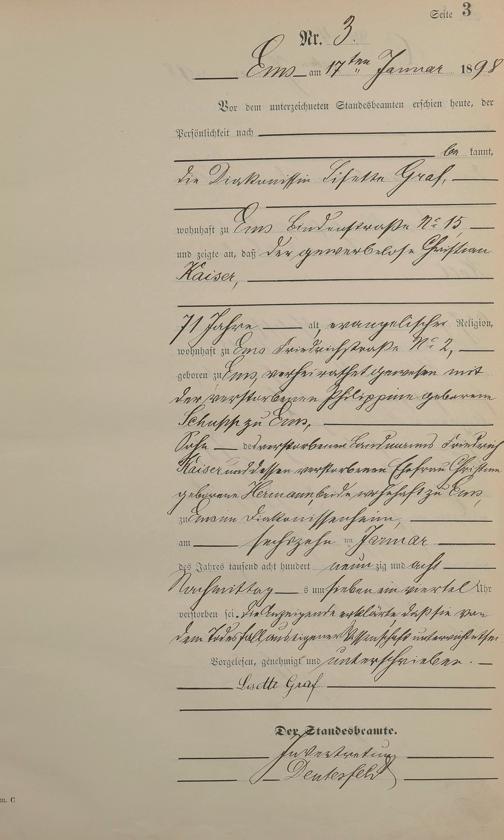 Seite 3
Nr. 3.
Ems am 17ten Januar 1898
Vor dem unterzeichneten Standesbeamten erschien heute, der
Persönlichkeit nach
be kannt,
die Diakonissin Lisette Graf,
wohnhaft zu Ems Lindenstraße No 15,
und zeigte an, daß der gewerbelose Christian
Kaiser,
71 Jahre alt, evangelischer Religion,
wohnhaft zu Ems Friedrichstraße No 2,
geboren zu Ems, verheirathet gewesen mit
der verstorbenen Philippine geborene
Schupp zu Ems,
Sohn des verstorbenen Landmanns Friedrich
Kaiser und dessen verstorbenen Ehefrau Christine
geborene Hermann, beide wohnhaft zu Ems,
zu Ems im Diakonissenheim,
am sechszehn ten Januar
des Jahres tausend acht hundert neun zig und acht
Nachmittag s um sieben ein viertel Uhr
verstorben sei. Die Anzeigende erklärte daß sie von
dem Todesfall aus eigener Wissenschaft unterrichtet sei
Vorgelesen, genehmigt und unterschrieben.
Lisette Graf
Der Standesbeamte.
In Vertretung
m. C